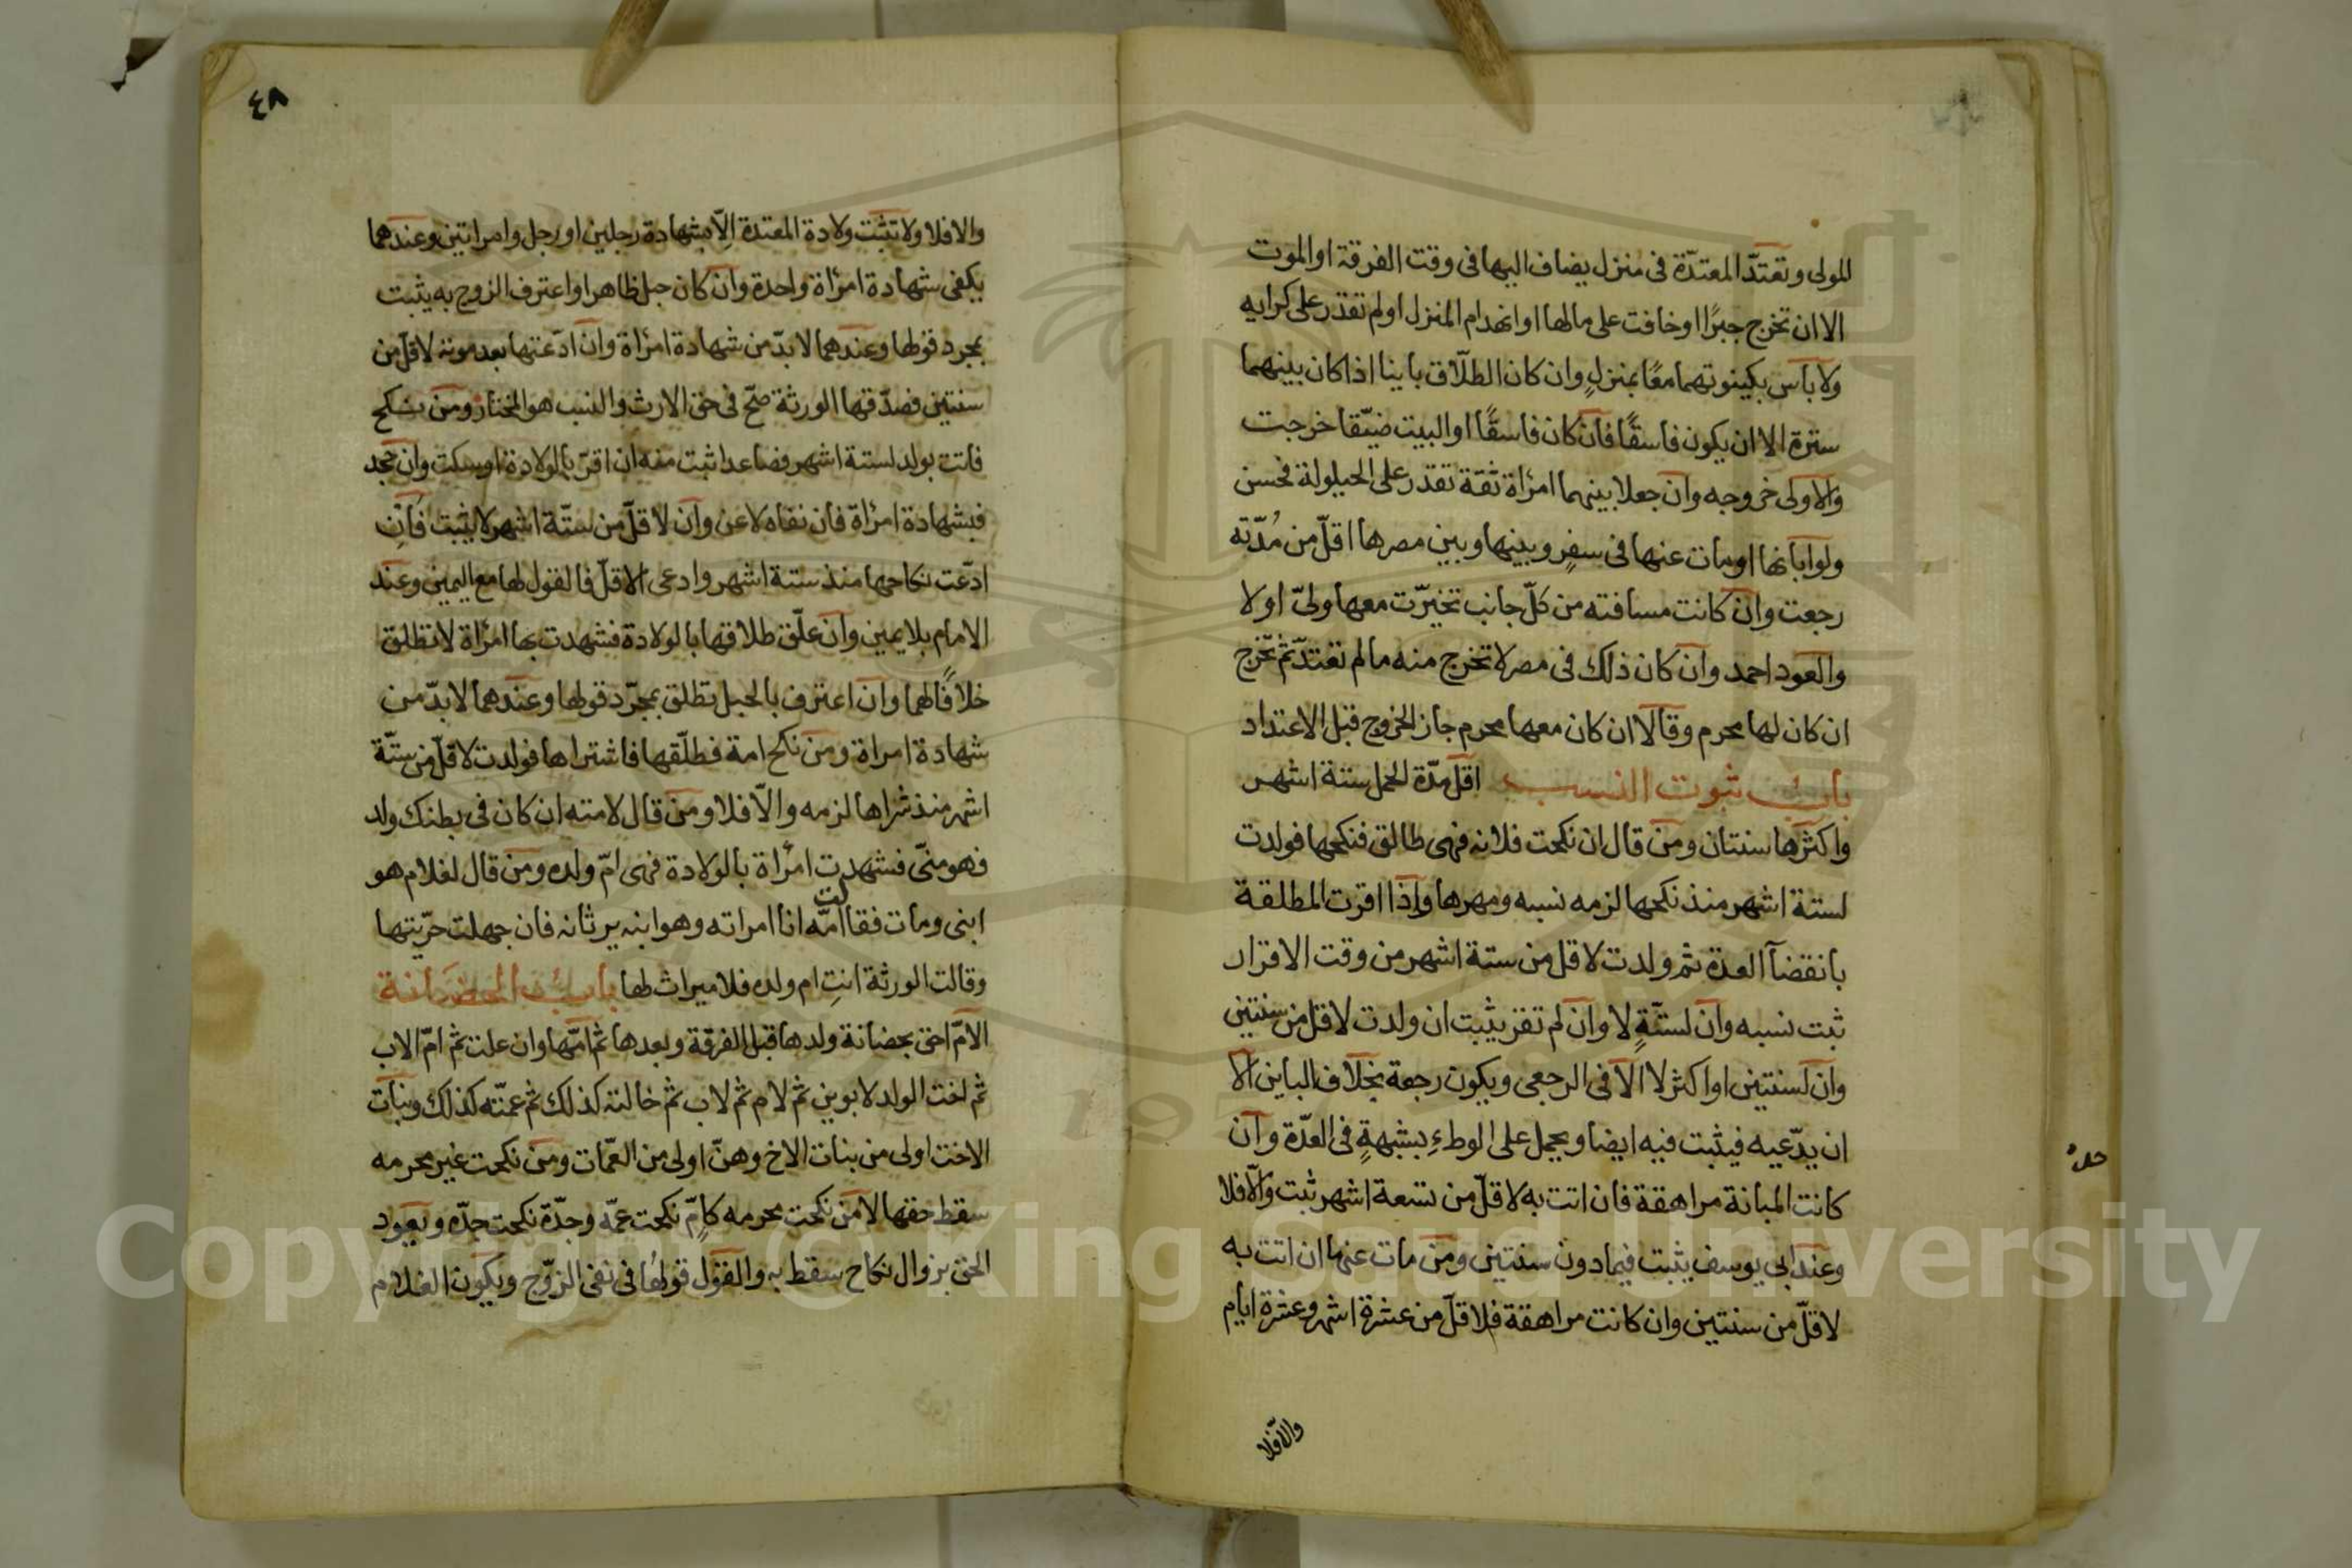 المولى وتعتدّ المعتدّة فى منزل يضاف اليها فى وقت الفرقة او الموت
الا ان تخرج جبرًا او خافت على مالها او انهدام المنزل او لم تقدر على كرايه
ولا بأس بكينونتهما معًا بمنزلٍ وان كان الطلاق باينا اذا كان بينهما
سترة الا ان يكون فاسقًا فان كان فاسقًا او البيت ضيّقا خرجت
والاولى خروجه وان جعلا بينهما امرأة ثقة تقدر على الحيلولة فحسن
ولو ابانها او مات عنها فى سفرٍ وبينها وبين مصرها اقلّ من مُدّته
رجعت وان كانت مسافته من كلّ جانب تخيّرت معها ولىّ او لا
والعود احمد وان كان ذلك فى مصر لا تخرج منه ما لم تعتدّ ثمّ تخرج
ان كان لها محرم وقالا ان كان معها محرم جاز الخروج قبل الاعتداد
باب ثبوت النسب اقلّ مدّة الحمل ستة اشهر
واكثرها سنتان ومن قال ان نكحت فلانه فهى طالق فنكحها فولدت
لستة اشهر منذ نكحها لزمه نسبه ومهرها واذا اقرت المطلقة
بانقضآ العدة ثم ولدت لاقل من ستة اشهر من وقت الاقرار
ثبت نسبه وان لستّةٍ لا وان لم تقر يثبت ان ولدت لاقل من سنتين
وان لسنتين او اكثر لا الا فى الرجعى ويكون رجعة بخلاف الباين الا
ان يدّعيه فيثبت فيه ايضا ويحمل على الوطءِ بشبهةٍ فى العدّة وان
كانت المبانة مراهقة فان اتت به لاقلّ من تسعة اشهر ثبت والّا فلا
وعند ابى يوسف يثبت فيما دون سنتين ومن مات عنها ان اتت به
لاقلّ من سنتين وان كانت مراهقة فلاقلّ من عشرة اشهر وعشرة ايام
والا فلا
٤٨
والا فلا ولا تثبت ولادة المعتدة الّا بشهادة رجلين او رجل وامراتين وعندهما
يكفى شهادة امرأة واحدة وان كان حبل ظاهر او اعترف الزوج به يثبت
بمجرد قولها وعندهما لا بدّ من شهادة امرأة وان ادّعتها بعد موته لاقلّ من
سنتين فصدّقها الورثة صحّ فى حق الارث والنسب هو المختار ومن نكح
فاتت بولد لستة اشهر فصاعدا ثبت منه ان اقرّ بالولادة او سكت وان جحد
فبشهادة امرأة فان نفاه لاعن وان لاقلّ من ستّة اشهر لا يثبت فان
ادّعت نكاحها منذ ستة اشهر وادعى الاقلّ فالقول لها مع اليمين وعند
الامام بلا يمين وان علّق طلاقها بالولادة فشهدت بها امرأة لا تطلق
خلافًا لهما وان اعترف بالحبل تطلق بمجرّد قولها وعندهما لا بدّ من
شهادة امراة ومن نكح امة فطلّقها فاشتراها فولدت لاقلّ من ستّة
اشهر منذ شراها لزمه والّا فلا ومن قال لامته ان كان فى بطنك ولد
فهو منّى فشهدت امرأة بالولادة فهى امّ ولده ومن قال لغلام هو
ابنى ومات فقالت امّه انا امراته وهو ابنه يرثانه فان جهلت حرّيتها
وقالت الورثة انتِ ام ولده فلا ميراث لها باب الحضانة
الامّ احق بحضانة ولدها قبل الفرقة وبعدها ثم امّها وان علت ثم امّ الاب
ثم اخت الولد لابوين ثم لام ثم لاب ثم خالته كذلك ثم عمّته كذلك وبنات
الاخت اولى من بنات الاخ وهنّ اولى من العمّات ومن نكحت غير محرمه
سقط حقها لا من نكحت محرمه كامّ نكحت عمّه وجدّة نكحت جدّه ويعود
الحق بزوال نكاح سقط به والقول قولها فى نفى الزوّج ويكون الغلام
Copyright © King Saud University